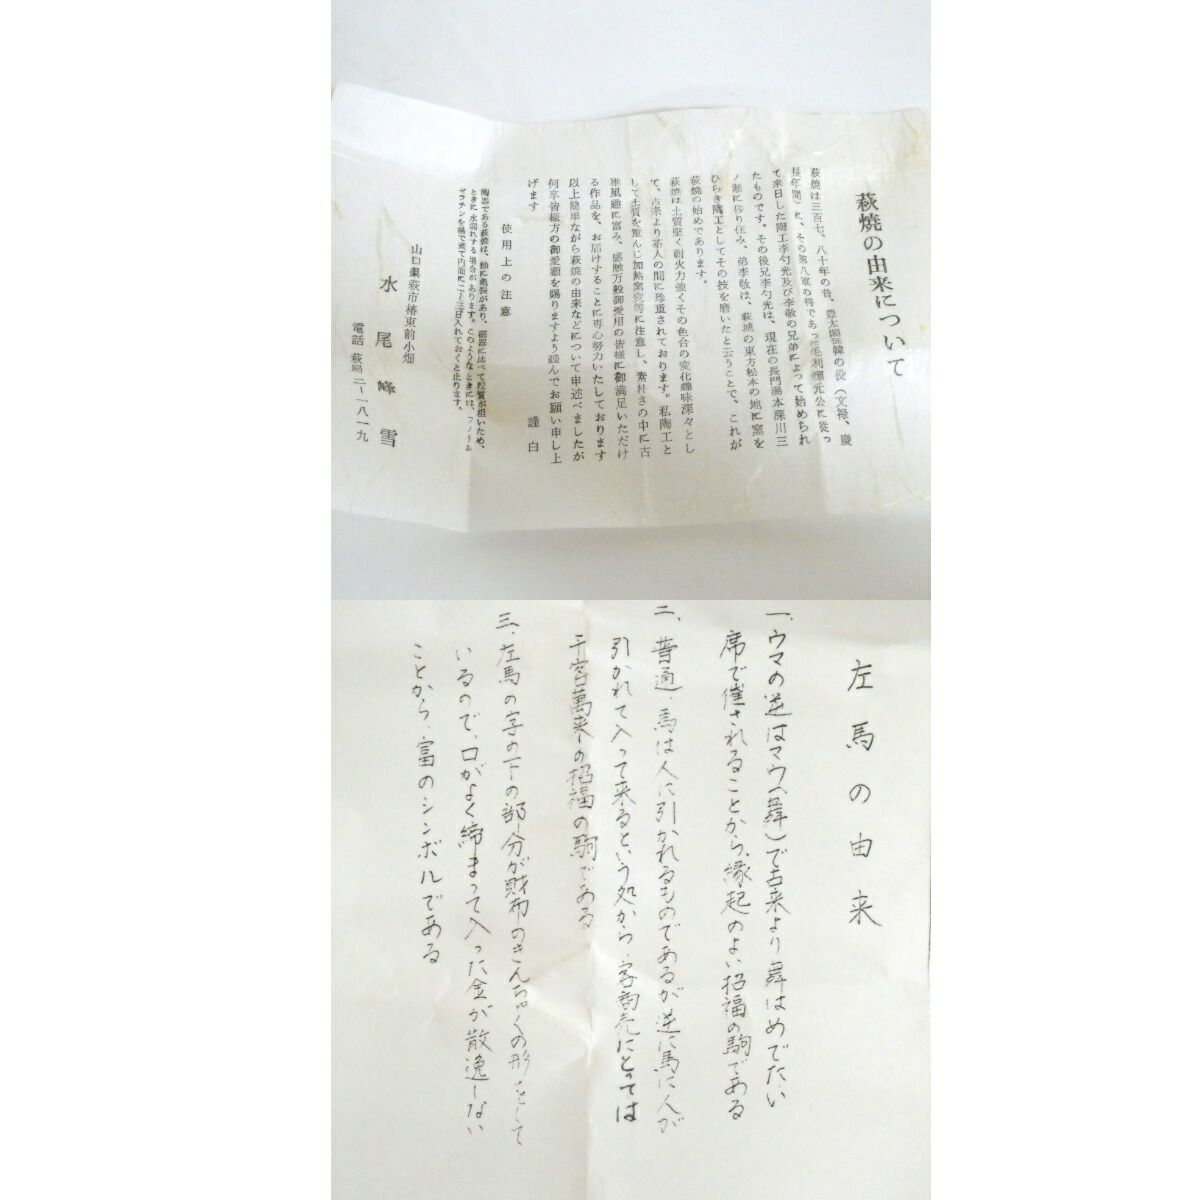 萩焼の由来について
萩焼は三百七、八十年の昔、豊太閤征韓の役(文禄、慶
長年間)に、その第八軍の将であった毛利輝元公に従っ
て来日した陶工李勺光及び李敬の兄弟によって始められ
たものです。その後兄李勺光は、現在の長門湯本深川三
ノ瀬に移り住み、弟李敬は、萩城の東方松本の地に窯を
ひらき陶工としてその技を磨いたと云うことで、これが
萩焼の始めであります。
萩焼は土質堅く耐火力強くその色合の変化趣味深々とし
て、古来より茶人の間に珍重されております。私陶工と
して土質を重んじ加熱窯変等に注意し、素朴さの中に古
雅風趣に富み、感触万般御愛用の皆様に御満足いただけ
る作品を、お届けすることに専心努力いたしております
以上簡単ながら萩焼の由来などについて申述べましたが
何卒皆様方の御愛顧を賜りますよう謹んでお願い申し上
げます
謹白
使用上の注意
陶器である萩焼は、釉に亀裂があり、磁器に比べて粒質が粗いため、
ときに水漏れする場合があります。このようなときには、フノリか
ゼラチンを湯で煮て内面に二〜三日入れておくと止ります。
山口県萩市椿東前小畑
水尾峰雪
電話 萩局二-一八一九
左馬の由来
一、ウマの逆はマウ(舞)で古来より舞はめでたい
席で催されることから、縁起のよい招福の駒である
二、普通、馬は人に引かれるものであるが逆に馬に人が
引かれて入って来るという処から、客商売にとっては
千客萬来の招福の駒である
三、左馬の字の下の部分が財布のきんちゃくの形をして
いるので、口がよく締まって入った金が散逸しない
ことから、富のシンボルである